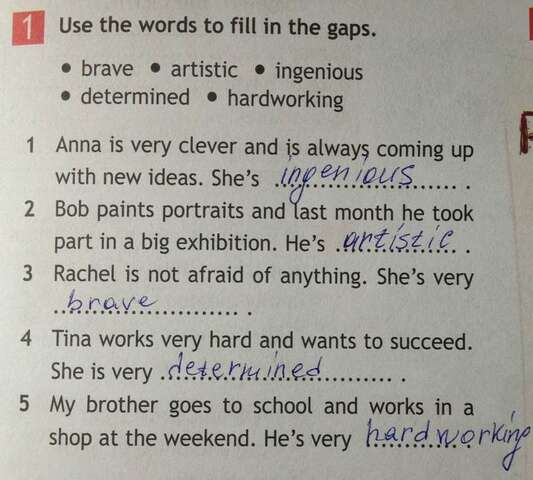 1 Use the words to fill in the gaps.
• brave • artistic • ingenious
• determined • hardworking
1 Anna is very clever and is always coming up
with new ideas. She's ingenious.
2 Bob paints portraits and last month he took
part in a big exhibition. He's artistic.
3 Rachel is not afraid of anything. She's very
brave.
4 Tina works very hard and wants to succeed.
She is very determined.
5 My brother goes to school and works in a
shop at the weekend. He's very hardworking